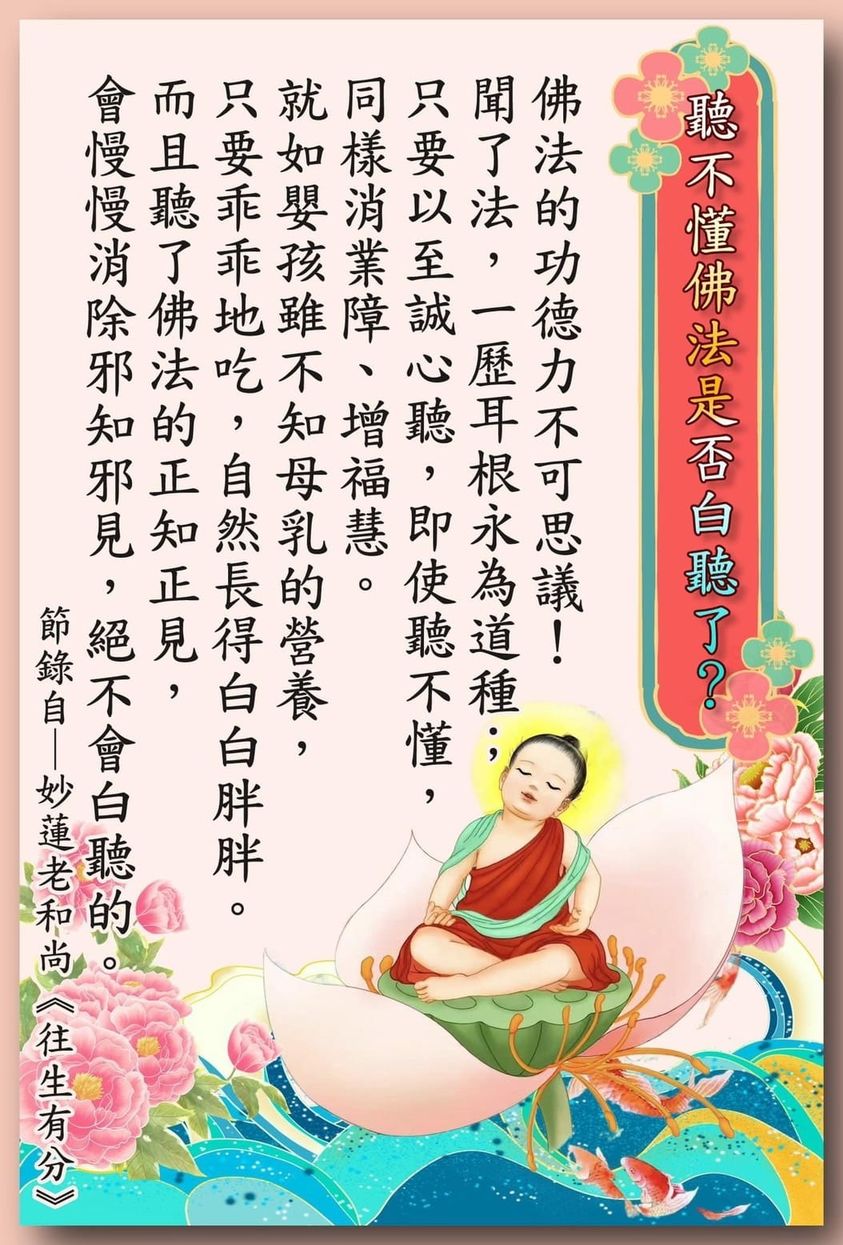 聽不懂佛法是否白聽了？
佛法的功德力不可思議！
聞了法，一歷耳根永為道種；
只要以至誠心聽，即使聽不懂，
同樣消業障、增福慧。
就如嬰孩雖不知母乳的營養，
只要乖乖地吃，自然長得白白胖胖。
而且聽了佛法的正知正見，
會慢慢消除邪知邪見，絕不會白聽的。
節錄自—妙蓮老和尚《往生有分》